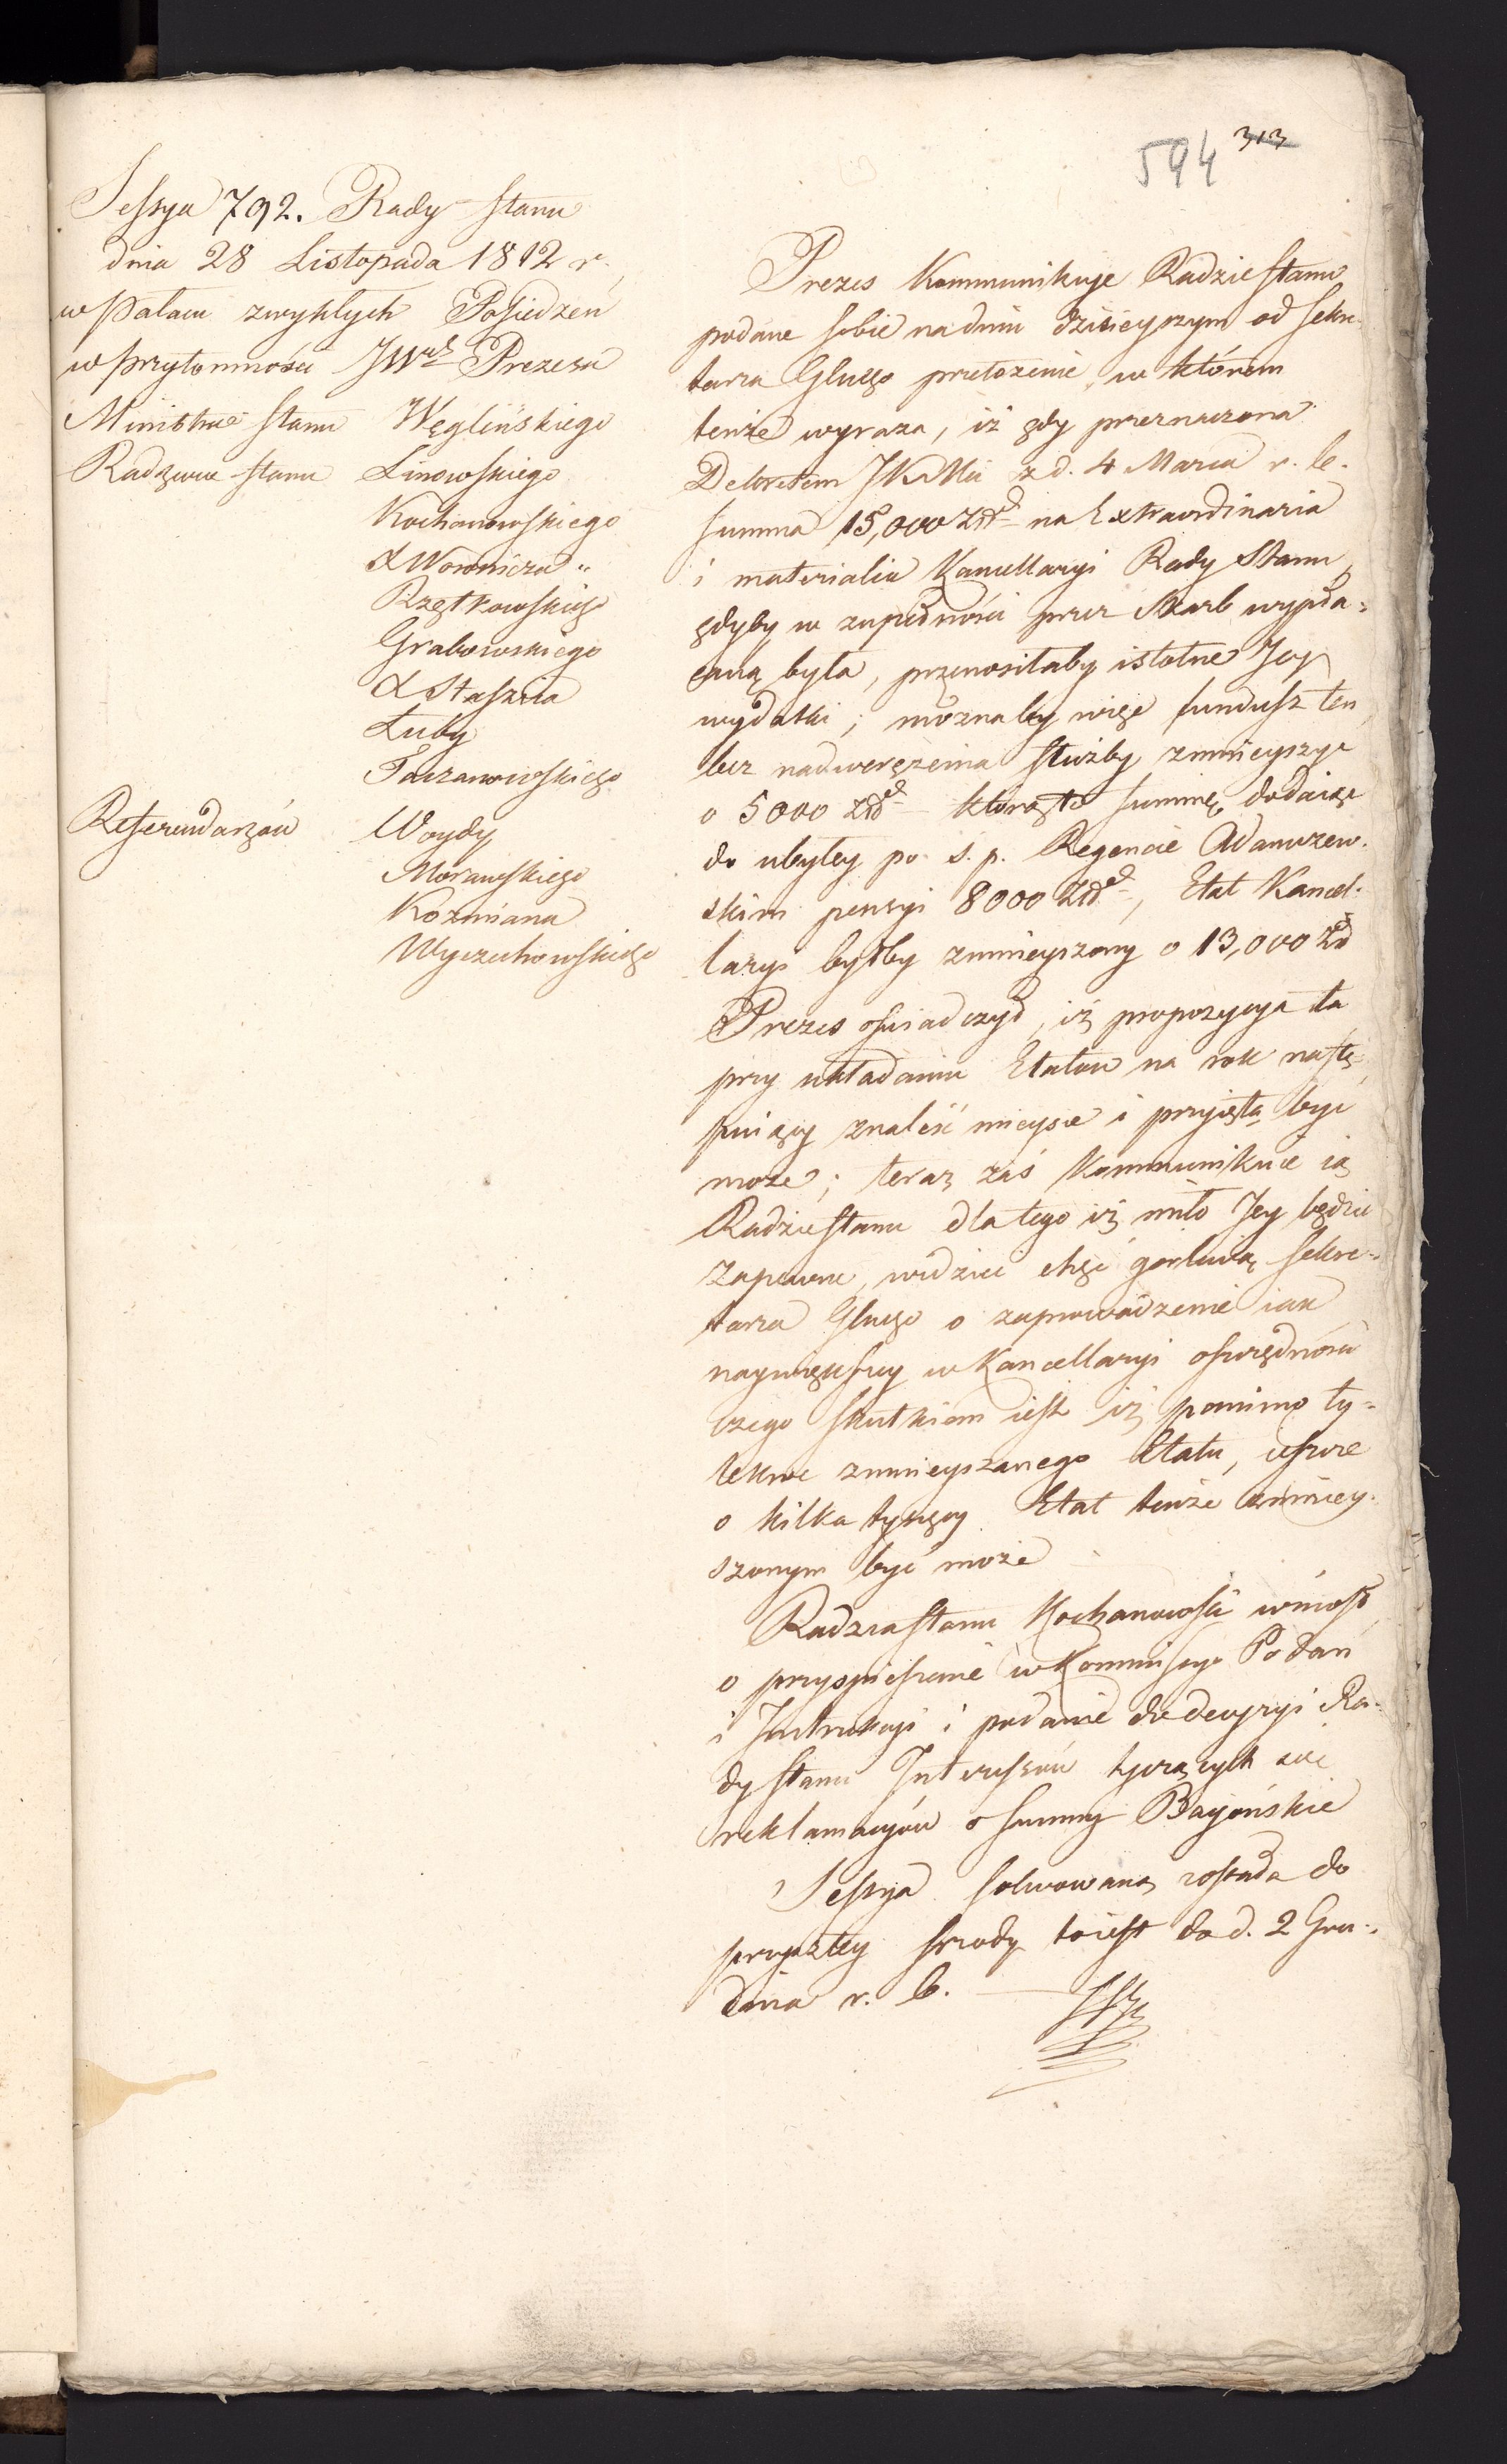 594 313
Sessya 792. Rady Stanu
dnia 28 Listopada 1812 r.
w Pałacu zwykłych Posiedzeń
w przytomności JWch Prezesa
Ministra Stanu Węglińskiego
Radzców Stanu Linowskiego
Kochanowskiego
X Woronicza "
Rzętkowskiego
Grabowskiego
X Staszica
Łuby
Taczanowskiego
Referendarzów Woydy
Morawskiego
Kozmiana
Wyczechowskiego
Prezes Kommunikuje Radzie Stanu
podane sobie na dniu dzisieyszym od Sekre-
tarza Głłgo przełożenie, w którem
tenże wyraża, iż gdy przeznaczona
Dekretem JKMci z d. 4 Marca r. b.
summa 15,000 Złł na Extraordinaria
i materialia Kancellaryi Rady Stanu,
gdyby w zupełności przez Skarb wypła-
caną była, przenosiłaby istotne Jey
wydatki; możnaby więc fundusz ten
bez nadwerężenia służby zmnieyszyć
o 5000 Złł którąto summę dodaiąc
do ubyłey po ś. p. Regencie Adamczew-
skim pensyi 8000 Złł, Etat Kancel-
laryi byłby zmnieyszony o 13,000 Zł
Prezes oświadczył, iż propozycya ta
przy układaniu Etatów na rok nastę-
puiący znaleść mieysce i przyiętą być
może; teraz zaś Kommunikuie ią
Radzie Stanu dla tego iż miło Jey będzie
zapewne, widzieć chęć gorliwą Sekre-
tarza Głłgo o zaprowadzenie iak
naywiększey w Kancellaryi oszczędności
czego skutkiem iest iż pomimo ty-
lekroć zmnieyszanego Etatu, ieszcze
o kilka tysięcy Etat tenże zmniey-
szonym być może
Radzca Stanu Kochanowski wniosł
o przyspieszenie w Kommissyi Podań
i Instrukcyi i podanie do decyzyi Ra-
dy Stanu Interessów tyczących się
reklamacyów o Summy Bayońskie
Sessya solwowaną została do
przyszłey srzody toiest do d. 2 Gru-
dnia r. b.